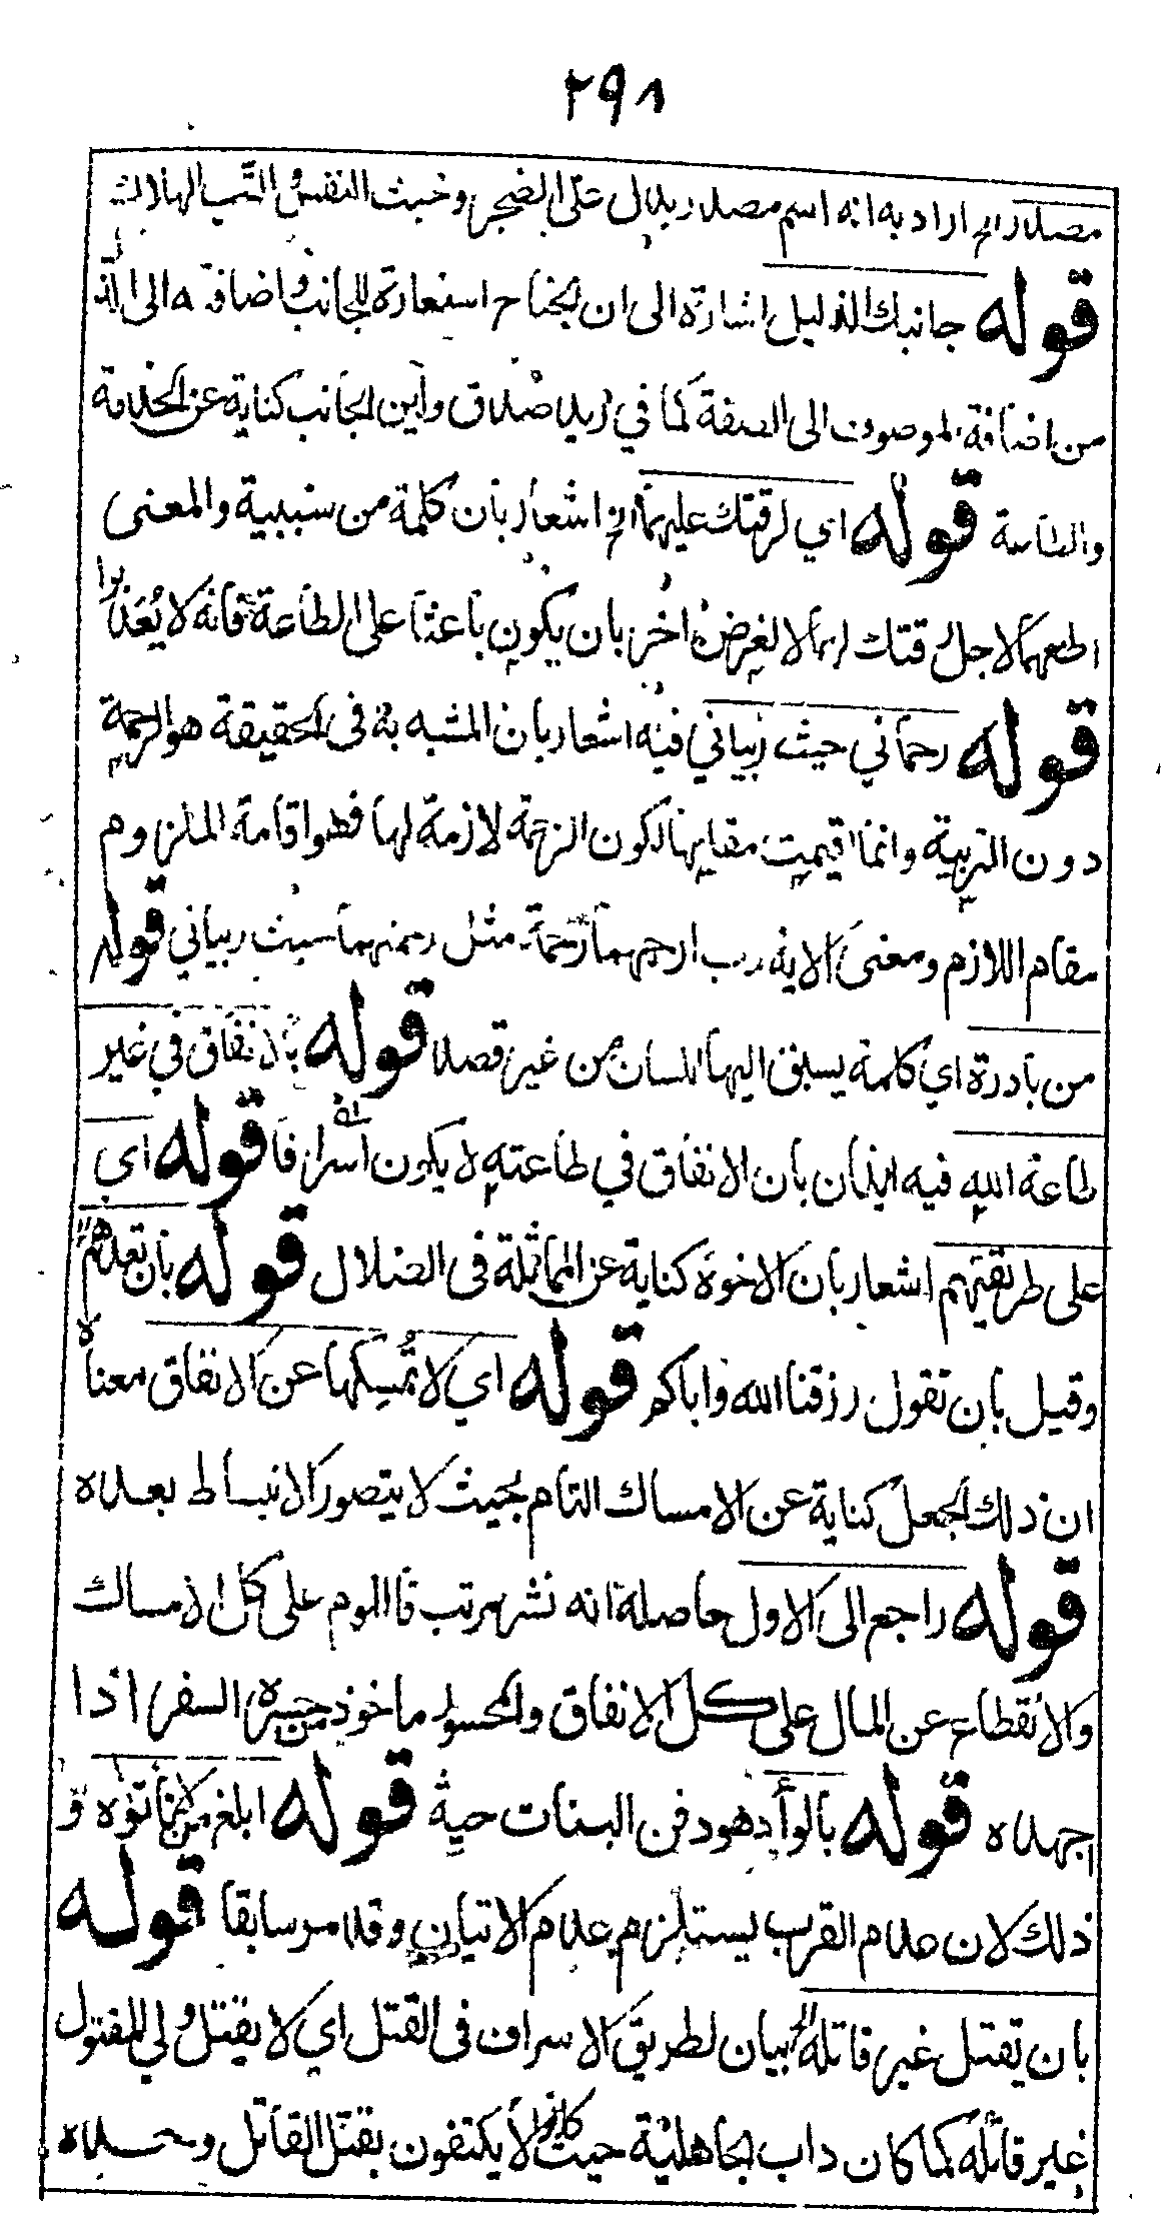 ٢٩٨
مصدر الخ اراد به انه اسم مصدر يدل على الضجر وخبث النفس
قوله جانبك الذليل اشارة الى ان الجناح استعارة للجانب واضافته الى الذل
من اضافة الموصوف الى الصفة كما في زيد صدق واين الجانب كناية عن الخدمة
والطاعة قوله اي لرقتك عليهما الخ اشعار بان كلمة من سببية والمعنى
اطعهما لاجل رقتك لهما لا لغرض اخر بان يكون باعثا على الطاعة فانه لا يُعَد برا
قوله رحماني حيث ربياني فيه اشعار بان المشبه به فى الحقيقة هو الرحمة
دون التربية وانما اقيمت مقامها لكون الرحمة لازمة لها فهو اقامة الملزوم
مقام اللازم ومعنى الاية رب ارحمهما رحمة مثل رحمتهما حيث ربياني قوله
من بادرة اي كلمة يسبق اليها اللسان من غير قصد قوله بالانفاق في غير
طاعة الله فيه ايذان بان الانفاق في طاعته لا يكون اسرافا قوله اي
على طريقتهم اشعار بان الاخوة كناية عن المماثلة فى الضلال قوله بان تعدهم
وقيل بان تقول رزقنا الله واياكم قوله اي لا تُمسكها عن الانفاق معناه
ان ذلك الجعل كناية عن الامساك التام بحيث لا يتصور الانبساط بعده
قوله راجع الى الاول حاصله انه نشر مرتب فاللوم على كل الامساك
والانقطاع عن المال على كل الانفاق والمحسور ماخوذ من حسره السفر اذا
اجهده قوله بالوأد هو دفن البنات حية قوله ابلغ من لا تأتوه و
ذلك لان عدم القرب يستلزم عدم الاتيان وقد مر سابقا قوله
بان تقتل غير قاتله الخ بيان لطريق الاسراف فى القتل اي لا يقتل ولي المقتول
غير قاتله كما كان داب الجاهلية حيث كانوا لا يكتفون بقتل القاتل وحده